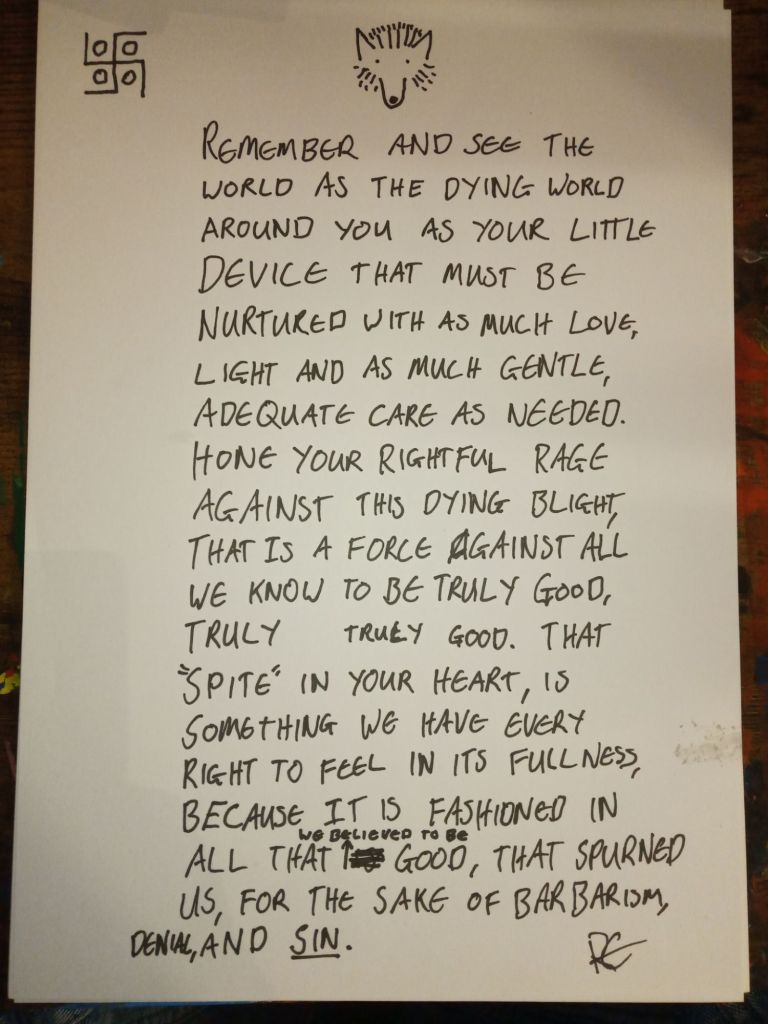 REMEMBER AND SEE THE
WORLD AS THE DYING WORLD
AROUND YOU AS YOUR LITTLE
DEVICE THAT MUST BE
NURTURED WITH AS MUCH LOVE,
LIGHT AND AS MUCH GENTLE,
ADEQUATE CARE AS NEEDED.
HONE YOUR RIGHTFUL RAGE
AGAINST THIS DYING BLIGHT,
THAT IS A FORCE AGAINST ALL
WE KNOW TO BE TRULY GOOD,
TRULY TRULY GOOD. THAT
"SPITE" IN YOUR HEART, IS
SOMETHING WE HAVE EVERY
RIGHT TO FEEL IN ITS FULLNESS,
BECAUSE IT IS FASHIONED IN
WE BELIEVED TO BE
ALL THAT GOOD, THAT SPURNED
US, FOR THE SAKE OF BARBARISM,
DENIAL, AND SIN.